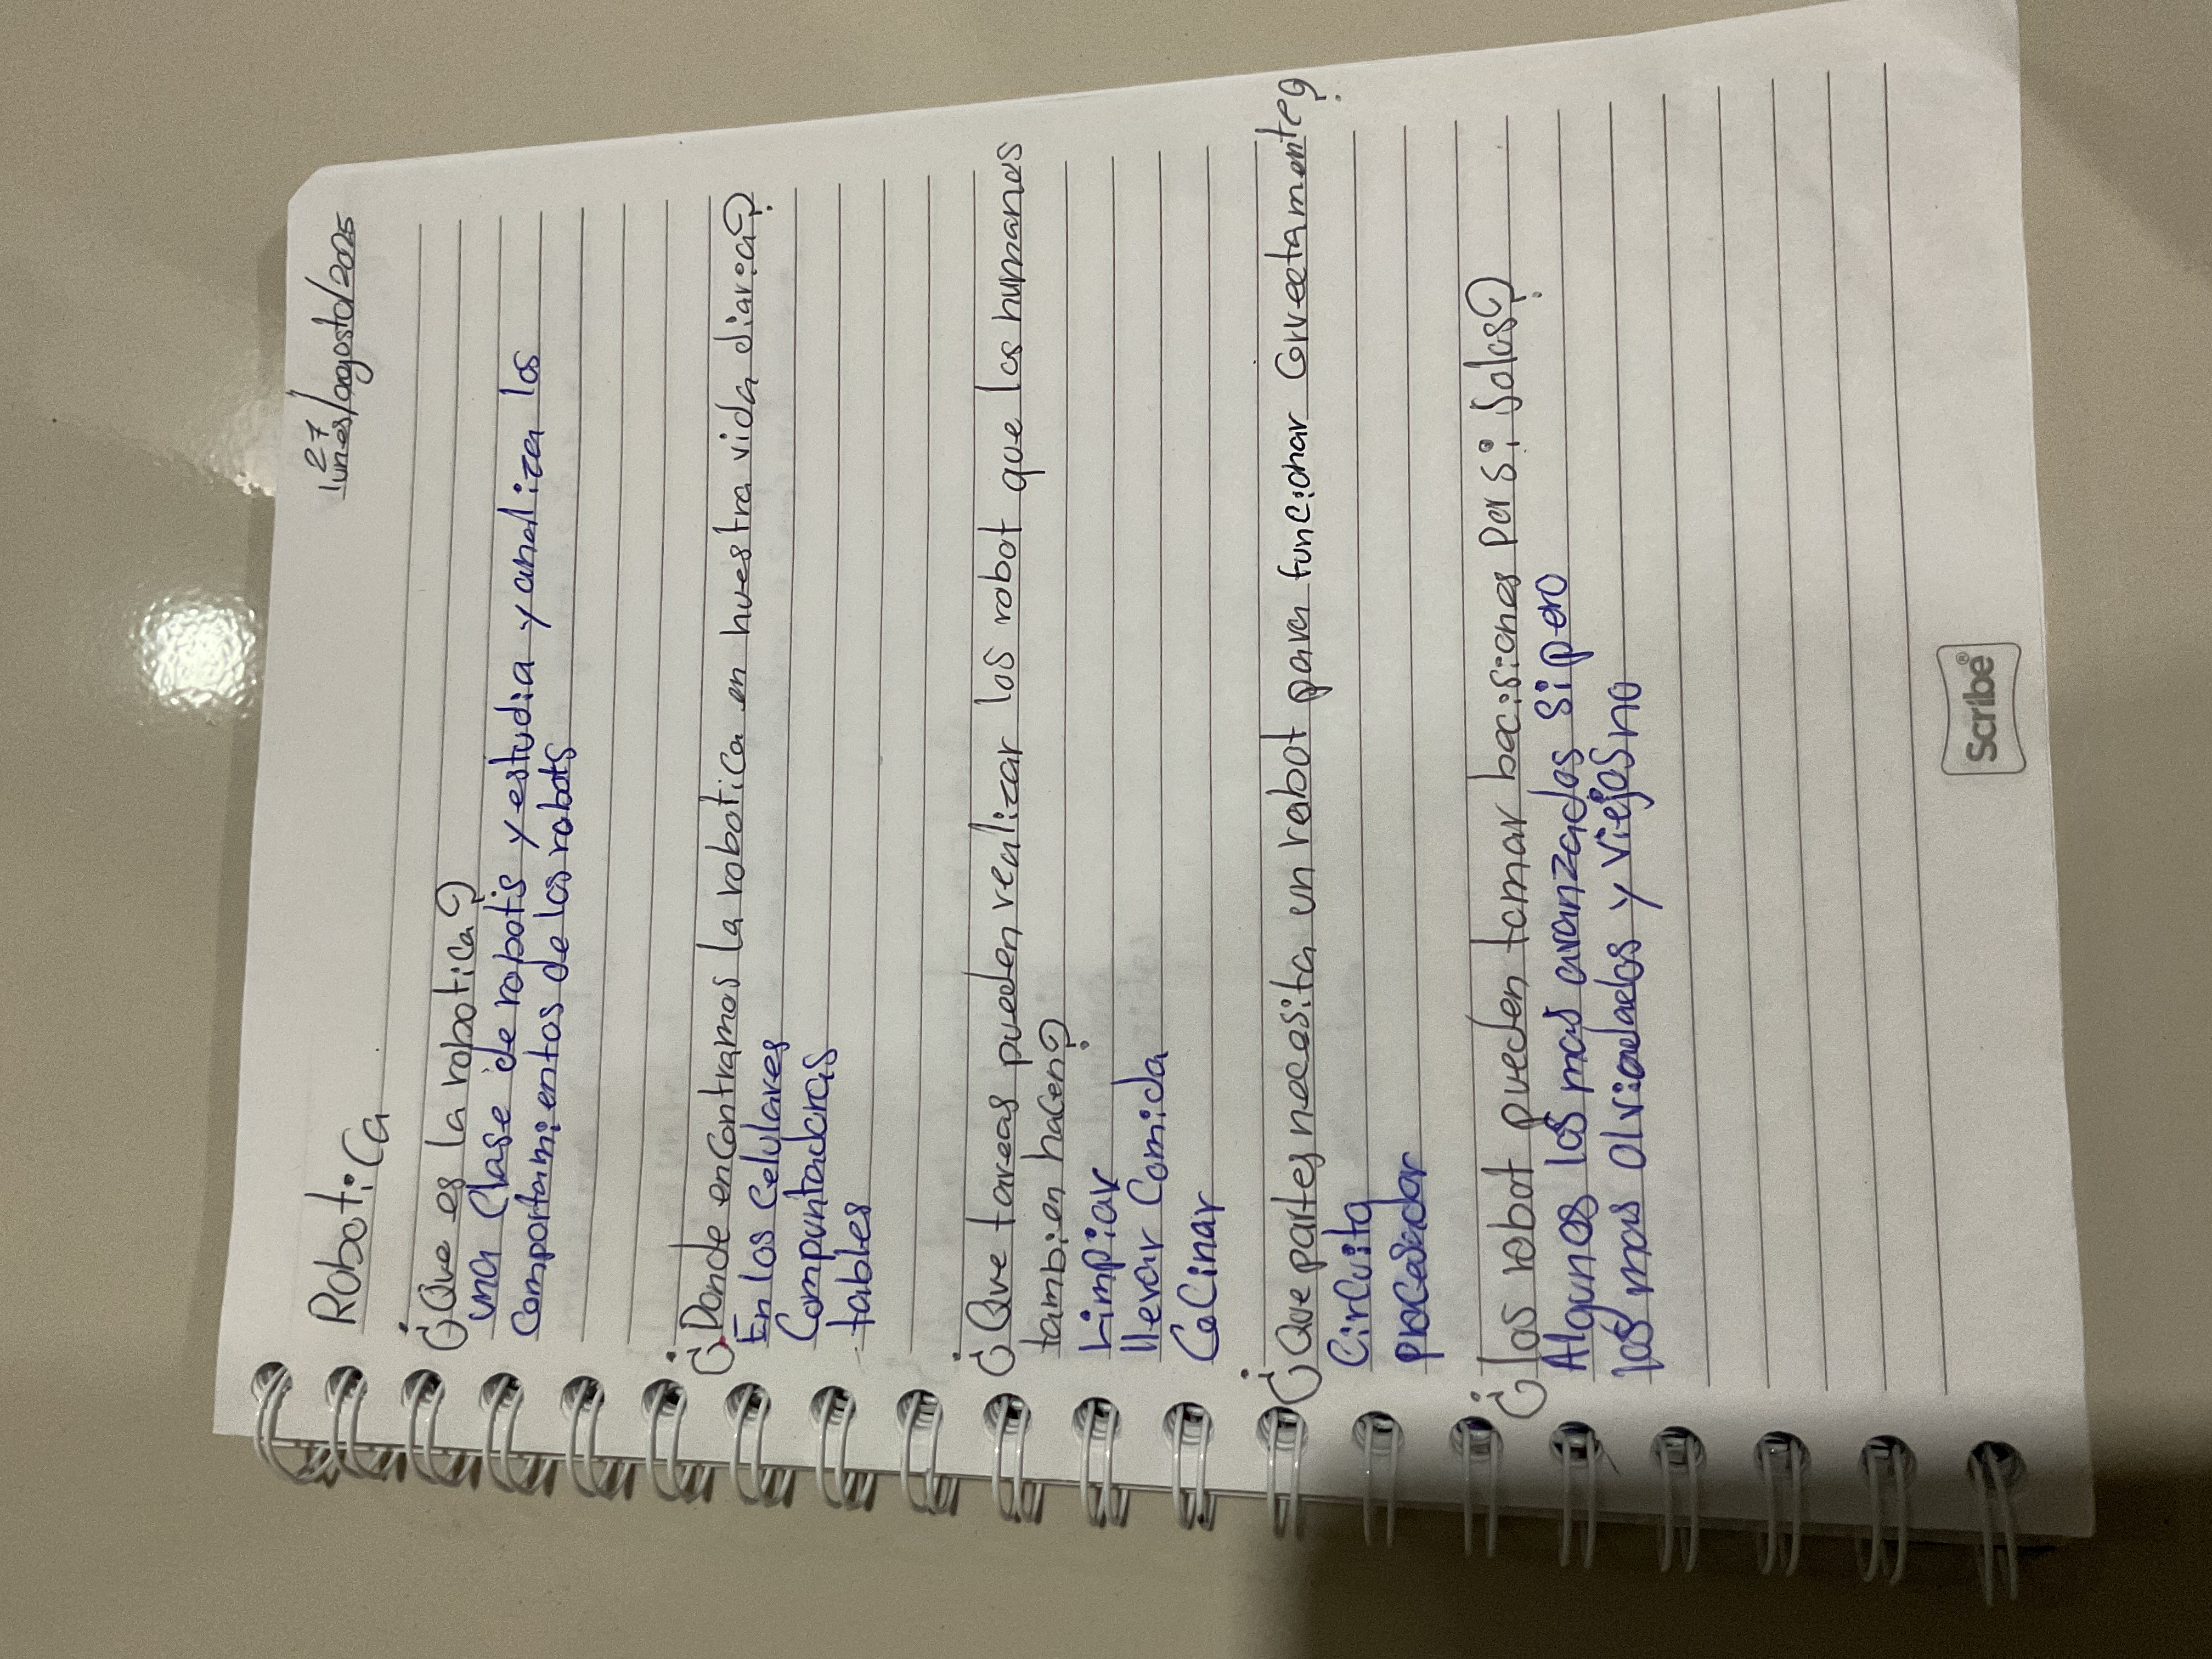 27
lunes/agosto/2025
Robotica
¿Que es la robotica?
una clase de robotis y estudia y analiza los
comportamientos de los robots
¿Donde encontramos la robotica en nuestra vida diaria?
En los celulares
Compuntadoras
tables
¿Que tareas pueden realizar los robot que los humanos
tambien hacen?
Limpiar
llevar Comida
CoCinar
¿Que partes necesita un robot para funcionar Correctamente?
CirCuito
procesador
¿los robot pueden tomar decisiones por si solos?
Algunos los mas avanzados si pero
los mas olvidados y viejos no
Scribe®